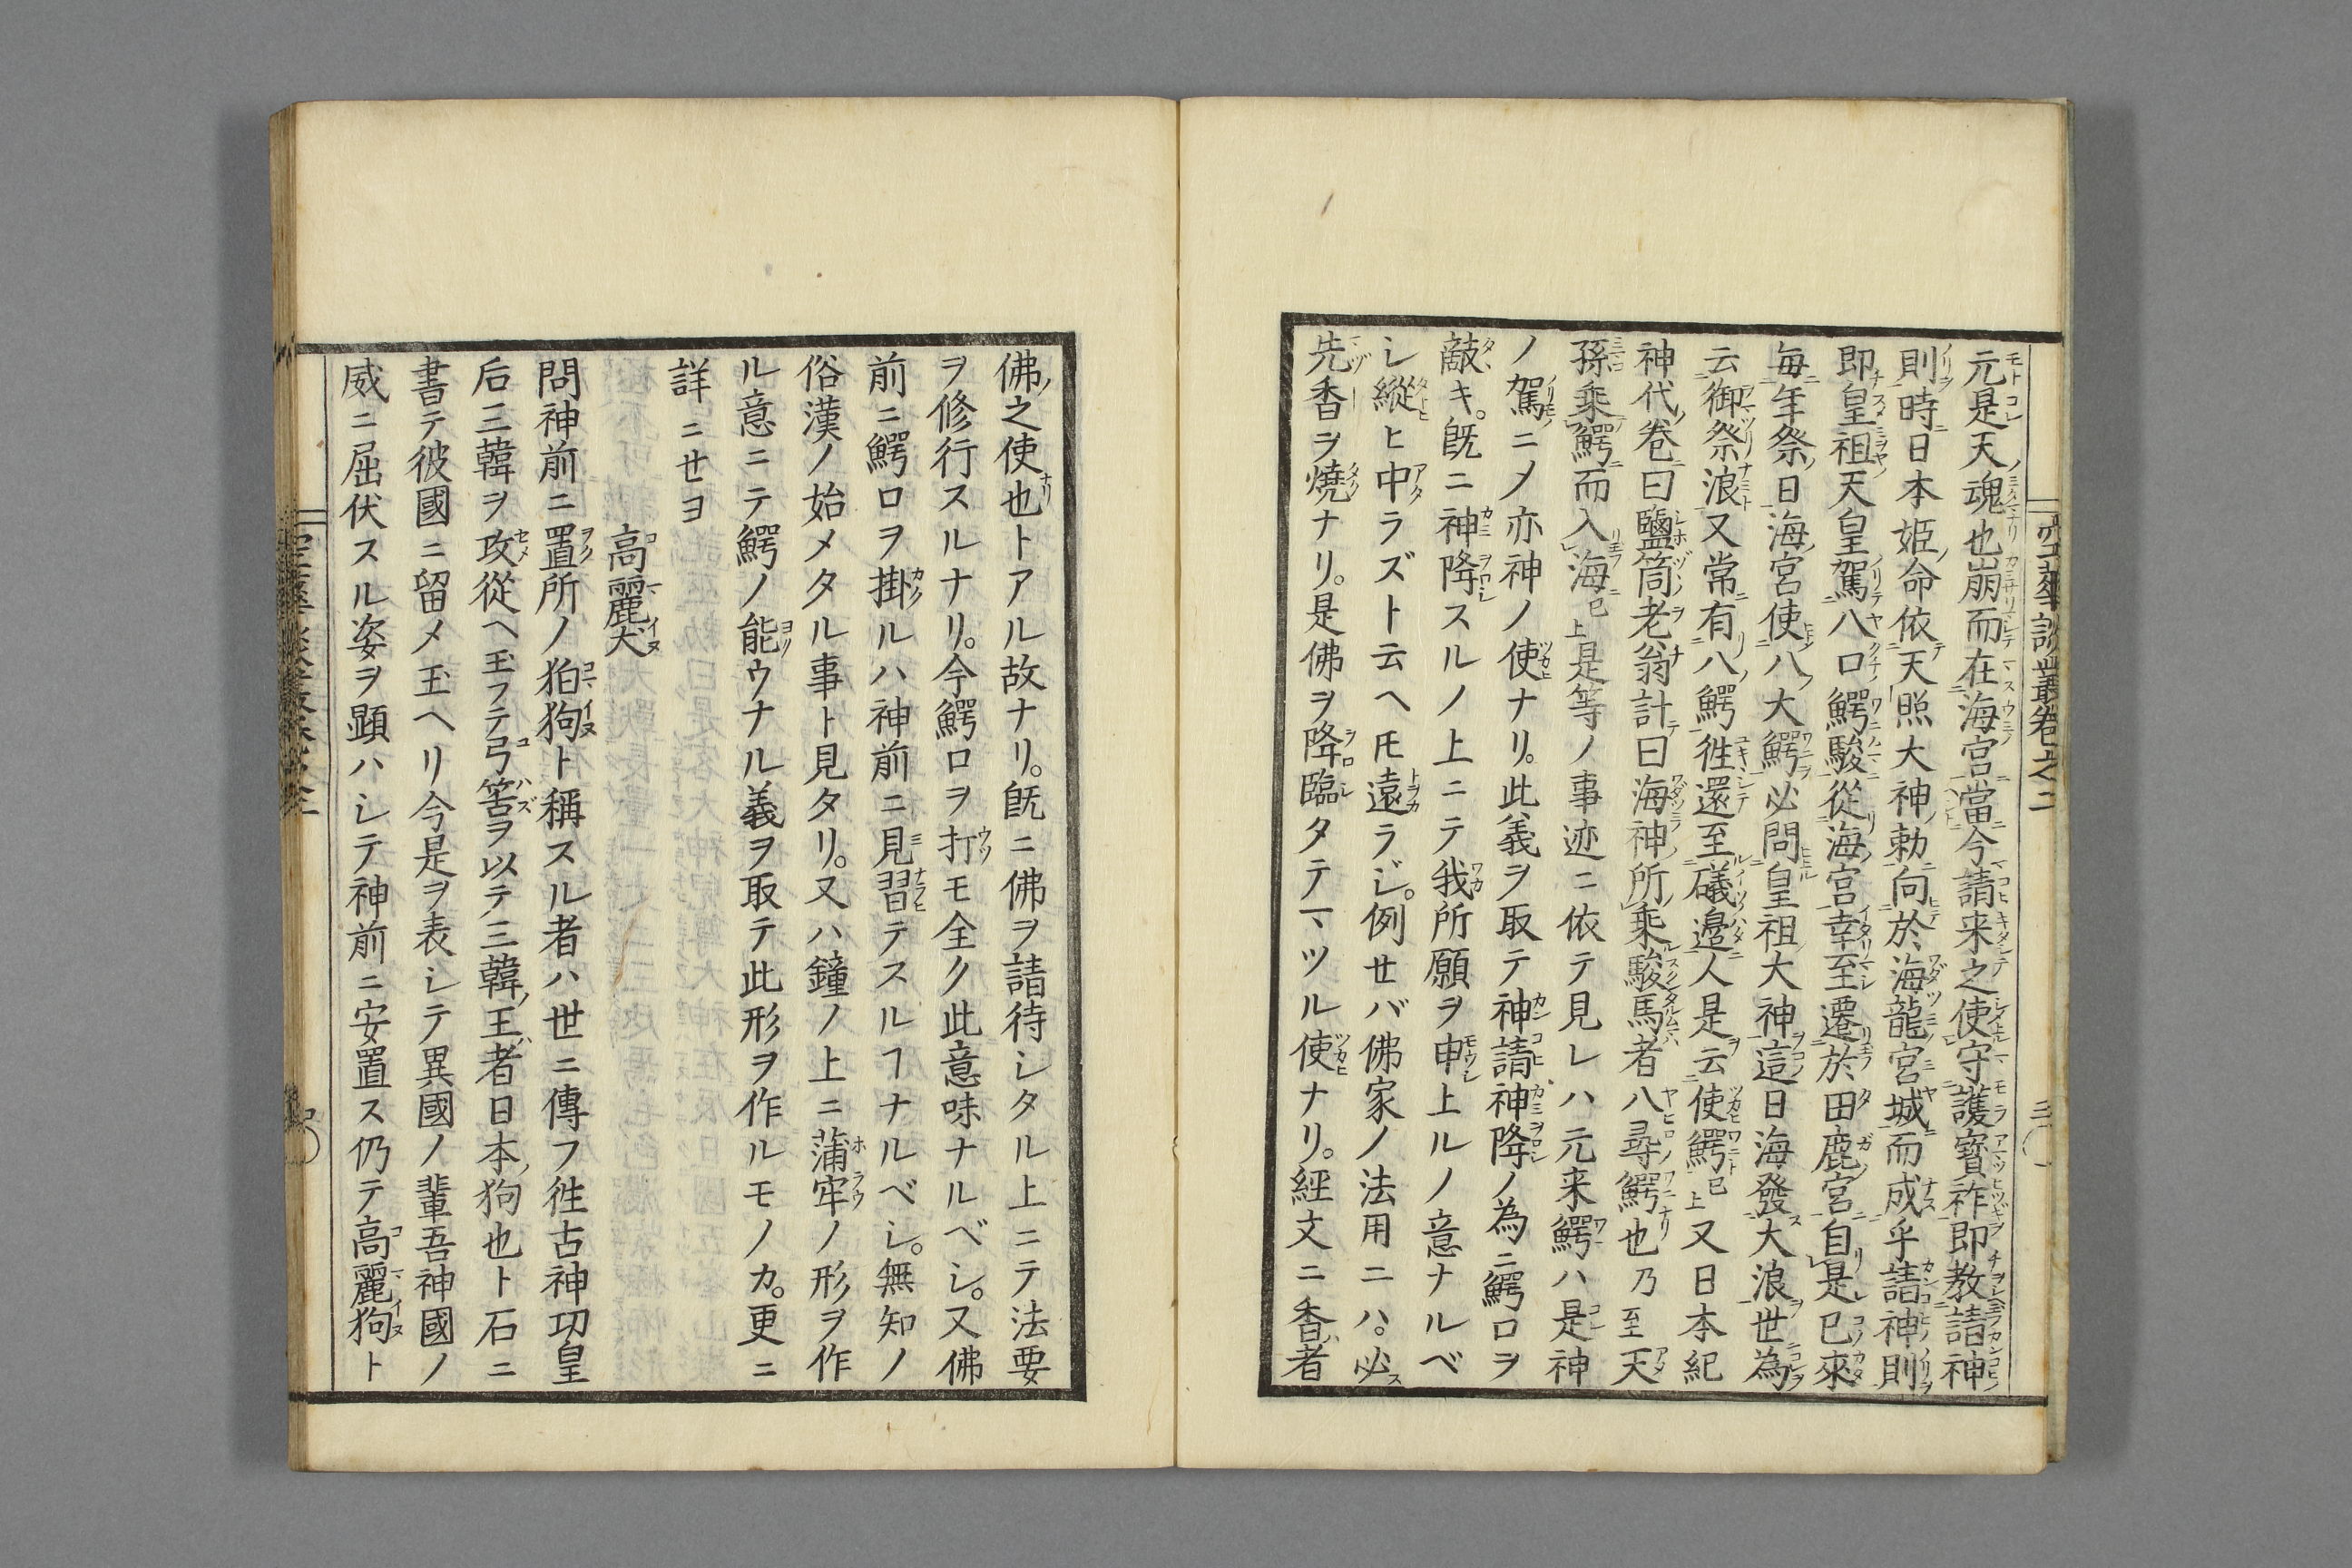 元是天魂也崩而在海宮當今請来之使守護寳祚即教請神
則時日本姫命依天照大神勅向於海龍宮城而成乎請神則
即皇祖天皇駕八口鰐駿從海宮幸至遷於田鹿宮自是已來
毎年祭日海宮使八大鰐必問皇祖大神這日海發大浪世為
云御祭浪又常有八鰐徃還至礒邉人是云使鰐已上又日本紀
神代巻曰鹽筒老翁計曰海神所乘駿馬者八尋鰐也乃至天
孫乗鰐而入海已上是等ノ事迹ニ依テ見レハ元来鰐ハ是神
ノ駕ニメ亦神ノ使ナリ。此義ヲ取テ神請神降ノ為ニ鰐口ヲ
敲キ。既ニ神降スルノ上ニテ我所願ヲ申上ルノ意ナルベ
シ縱ヒ中ラズト云ヘ𪜈遠ラジ。例セバ佛家ノ法用ニハ。必
先香ヲ燒ナリ。是佛ヲ降臨タテマツル使ナリ。経文ニ香者
佛之使也トアル故ナリ。既ニ佛ヲ請待シタル上ニテ法要
ヲ修行スルナリ。今鰐口ヲ打モ全ク此意味ナルベシ。又佛
前ニ鰐口ヲ掛ルハ神前ニ見習テスルヿナルベシ。無知ノ
俗漢ノ始メタル事ト見タリ。又ハ鐘ノ上ニ蒲牢ノ形ヲ作
ル意ニテ鰐ノ能ウナル義ヲ取テ此形ヲ作ルモノカ。更ニ
詳ニセヨ
高麗犬
問神前ニ置所ノ狛狗ト稱スル者ハ世ニ傳フ徃古神功皇
后三韓ヲ攻從ヘ玉フテ弓筈ヲ以テ三韓ノ王者日本ノ狗也ト石ニ
書テ彼國ニ留メ玉ヘリ今是ヲ表シテ異國ノ輩吾神國ノ
威ニ屈伏スル姿ヲ顕ハシテ神前ニ安置ス仍テ高麗狗ト